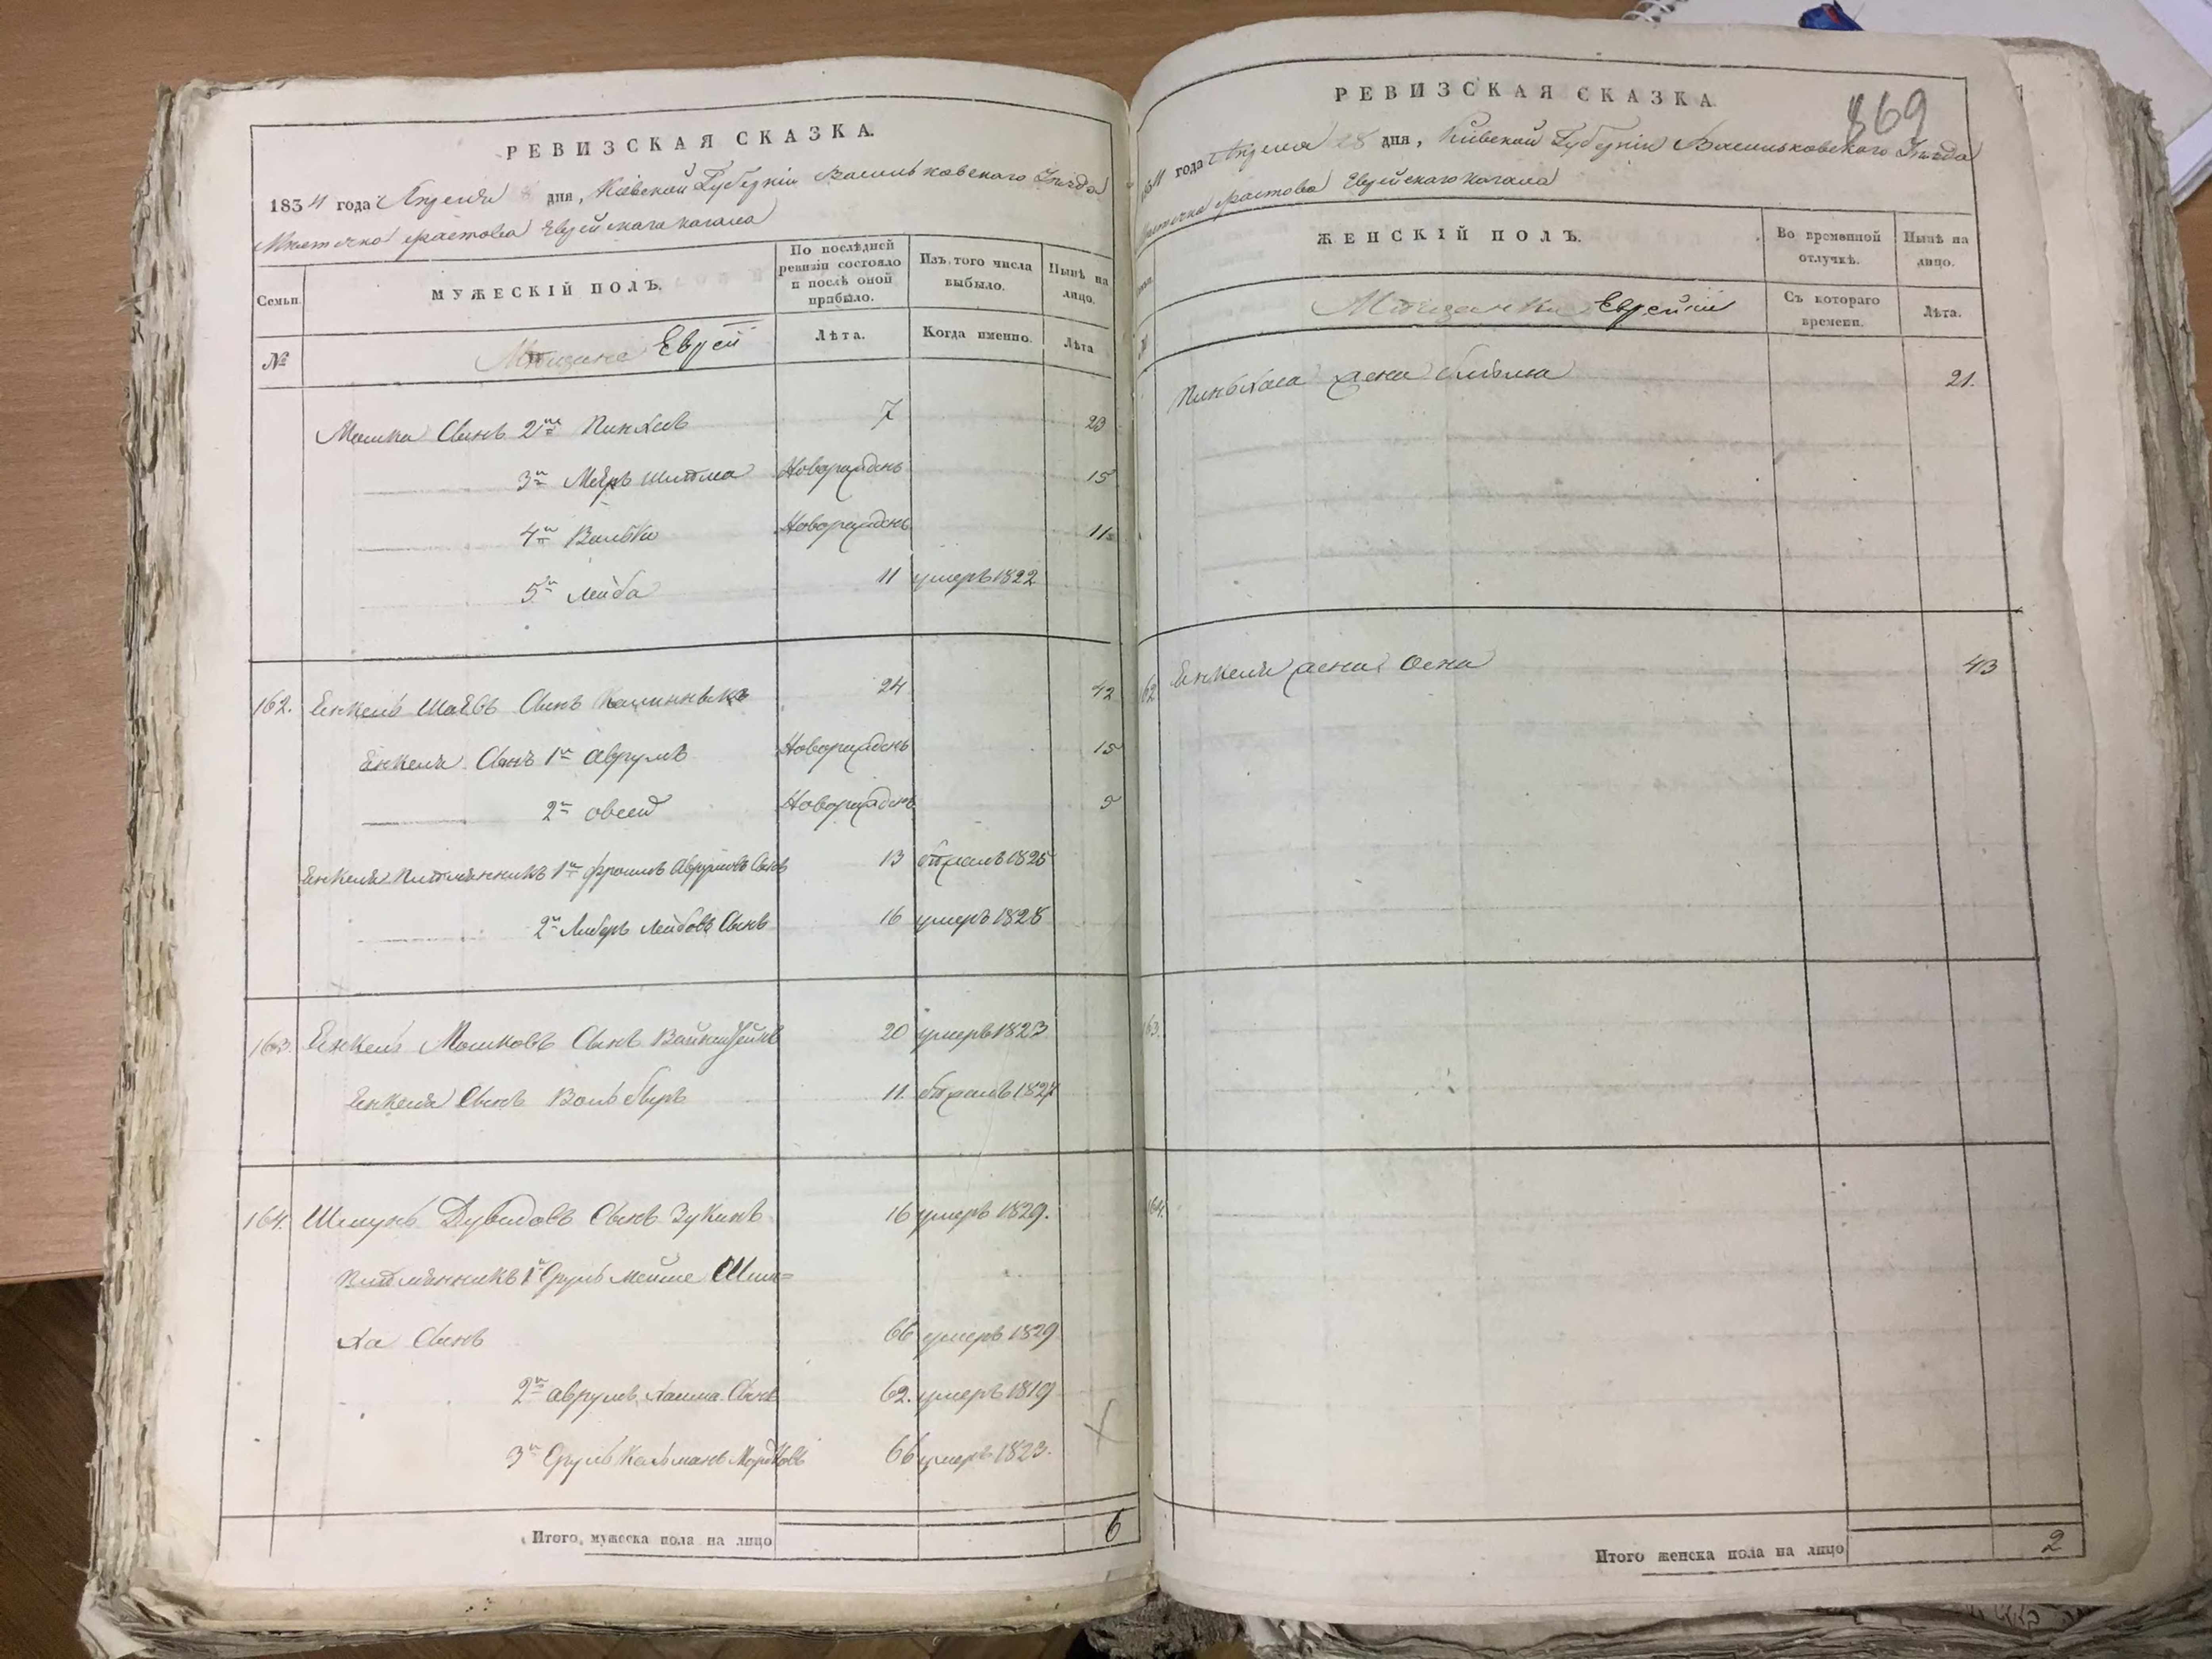 РЕВИЗСКАЯ СКАЗКА.
1834 года Апреля дня, Кіевской Губерніи Васильковскаго Уѣзда
Мѣстечка Фастова Еврейскаго кагала
Семьи.
МУЖЕСКІЙ ПОЛЪ.
По послѣдней ревизіи состояло и послѣ оной прибыло.
Изъ того числа выбыло.
Нынѣ на лицо.
№
Мѣщане Евреи
Лѣта.
Когда именно.
Лѣта
Мошка Сынъ 2й Пинхасъ 7 23
3й Меиръ Новорожденъ 15
4й Волько Новорожденъ 11
5й Лейба 11 умеръ 1822
162. Енкель Сынъ 24 42
Енкеля Сынъ 1й Аврумъ Новорожденъ 15
2й овсей Новорожденъ
Енкеля племянникъ 1й Фроимъ Аврумовъ Сынъ 13 1825
2й Либеръ Лейбовъ Сынъ 16 умеръ 1828
163. Енкель Мошковъ Сынъ 20 умеръ 1823
Енкеля Сынъ Воль беръ 11. 1827
164. Шмуль Дувидовъ Сынъ Зукинъ 16 умеръ 1829.
племянникъ 1й Сруль Мейше Сим=
ха Сынъ 66 умеръ 1829
2й аврумъ Хаима Сынъ 62. умеръ 1819
3й Сруль Кальманъ Мордковъ 66 умеръ 1823.
Итого, мужеска пола на лицо 6
РЕВИЗСКАЯ СКАЗКА
869
1834 года Апреля 28 дня, Кіевской Губерніи Васильковскаго Уѣзда
Мѣстечка Фастова Еврейскаго кагала
ЖЕНСКІЙ ПОЛЪ.
Во временной отлучкѣ.
Нынѣ на лицо.
Мѣщанки Еврейки
Съ котораго времени.
Лѣта.
Пиньхаса жена 21.
162 Енкеля жена Осна 43
163.
164.
Итого женска пола на лицо 2